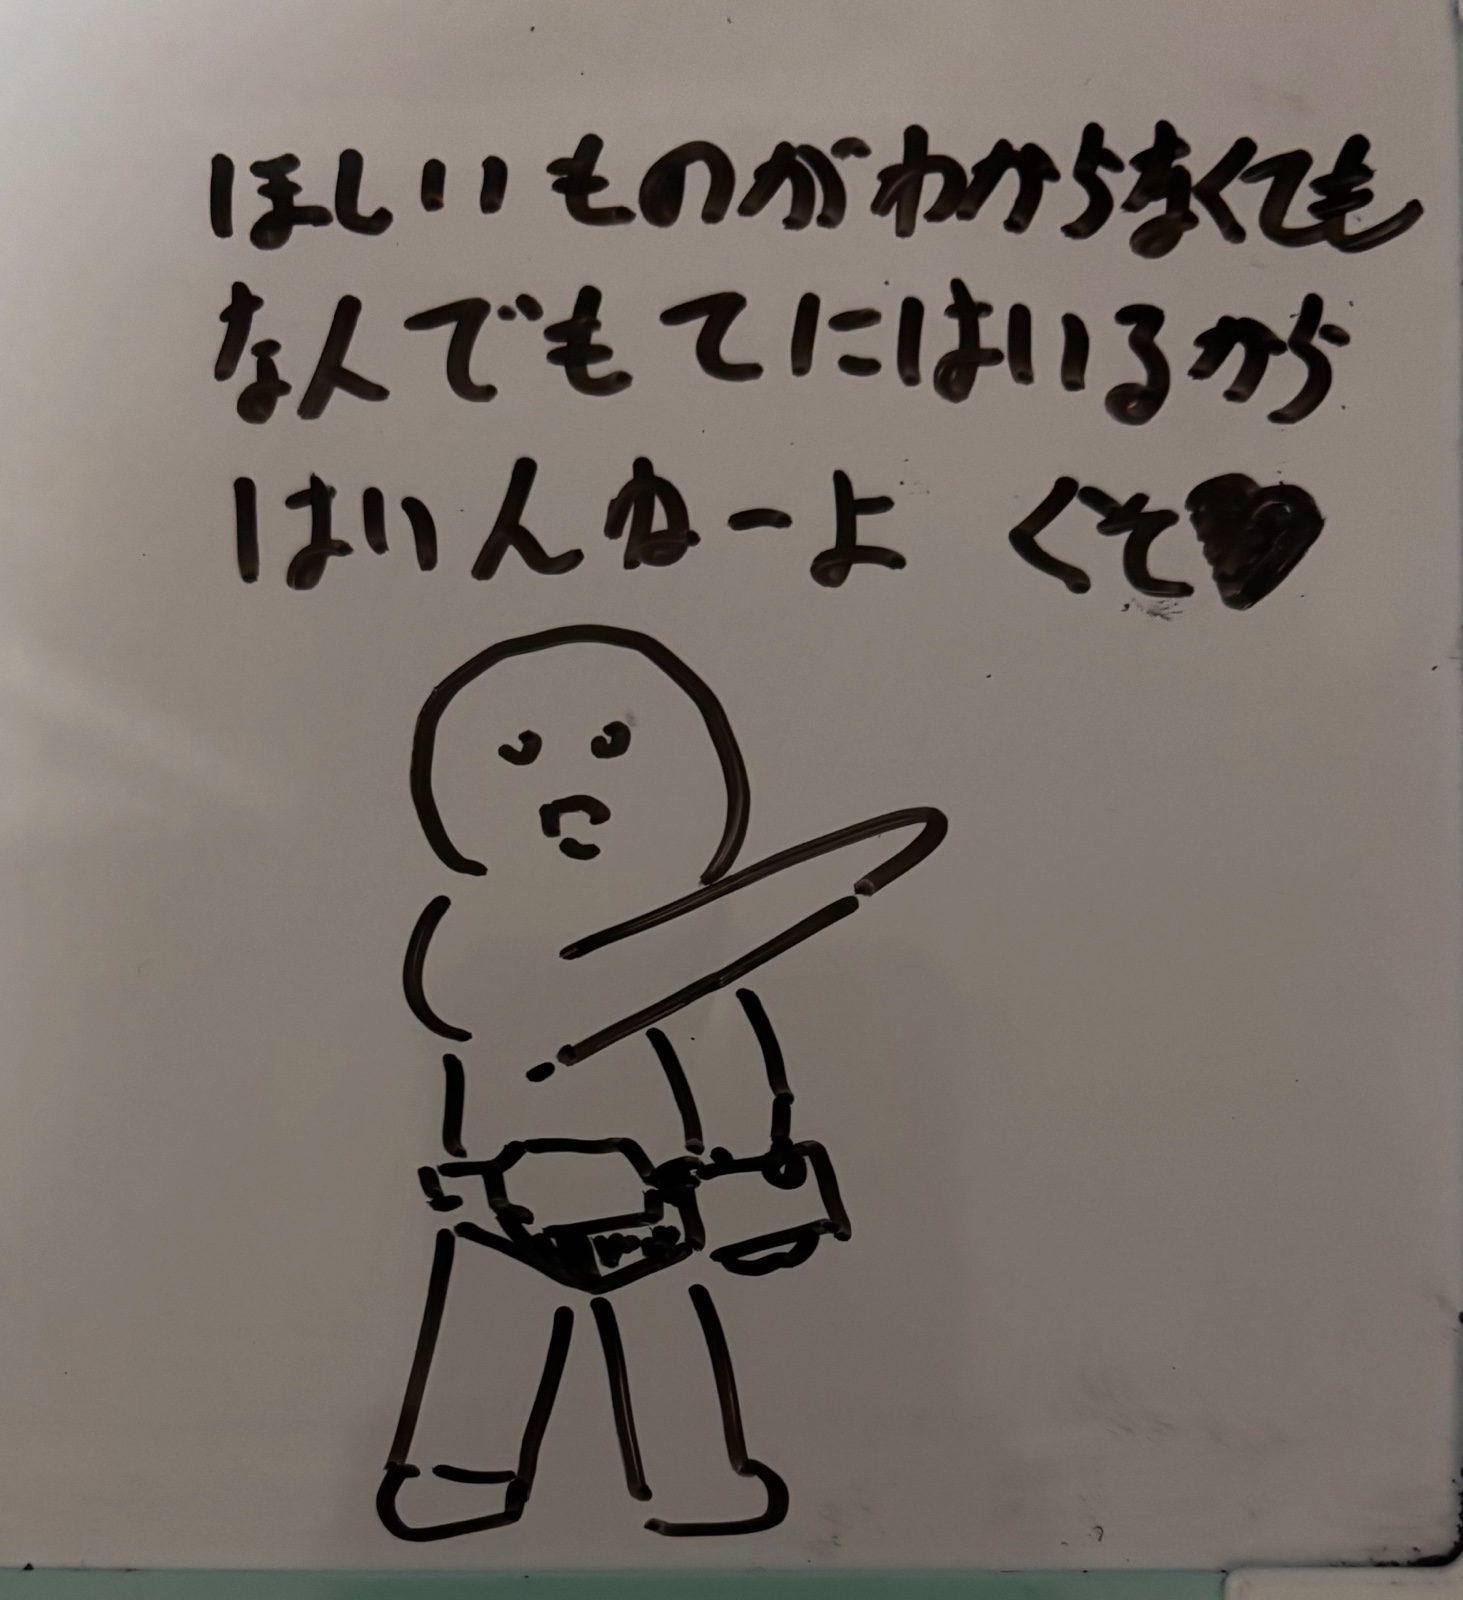 ほしいものがわからなくても
な人でもてにはいるから
はいんねーよ くそ♥